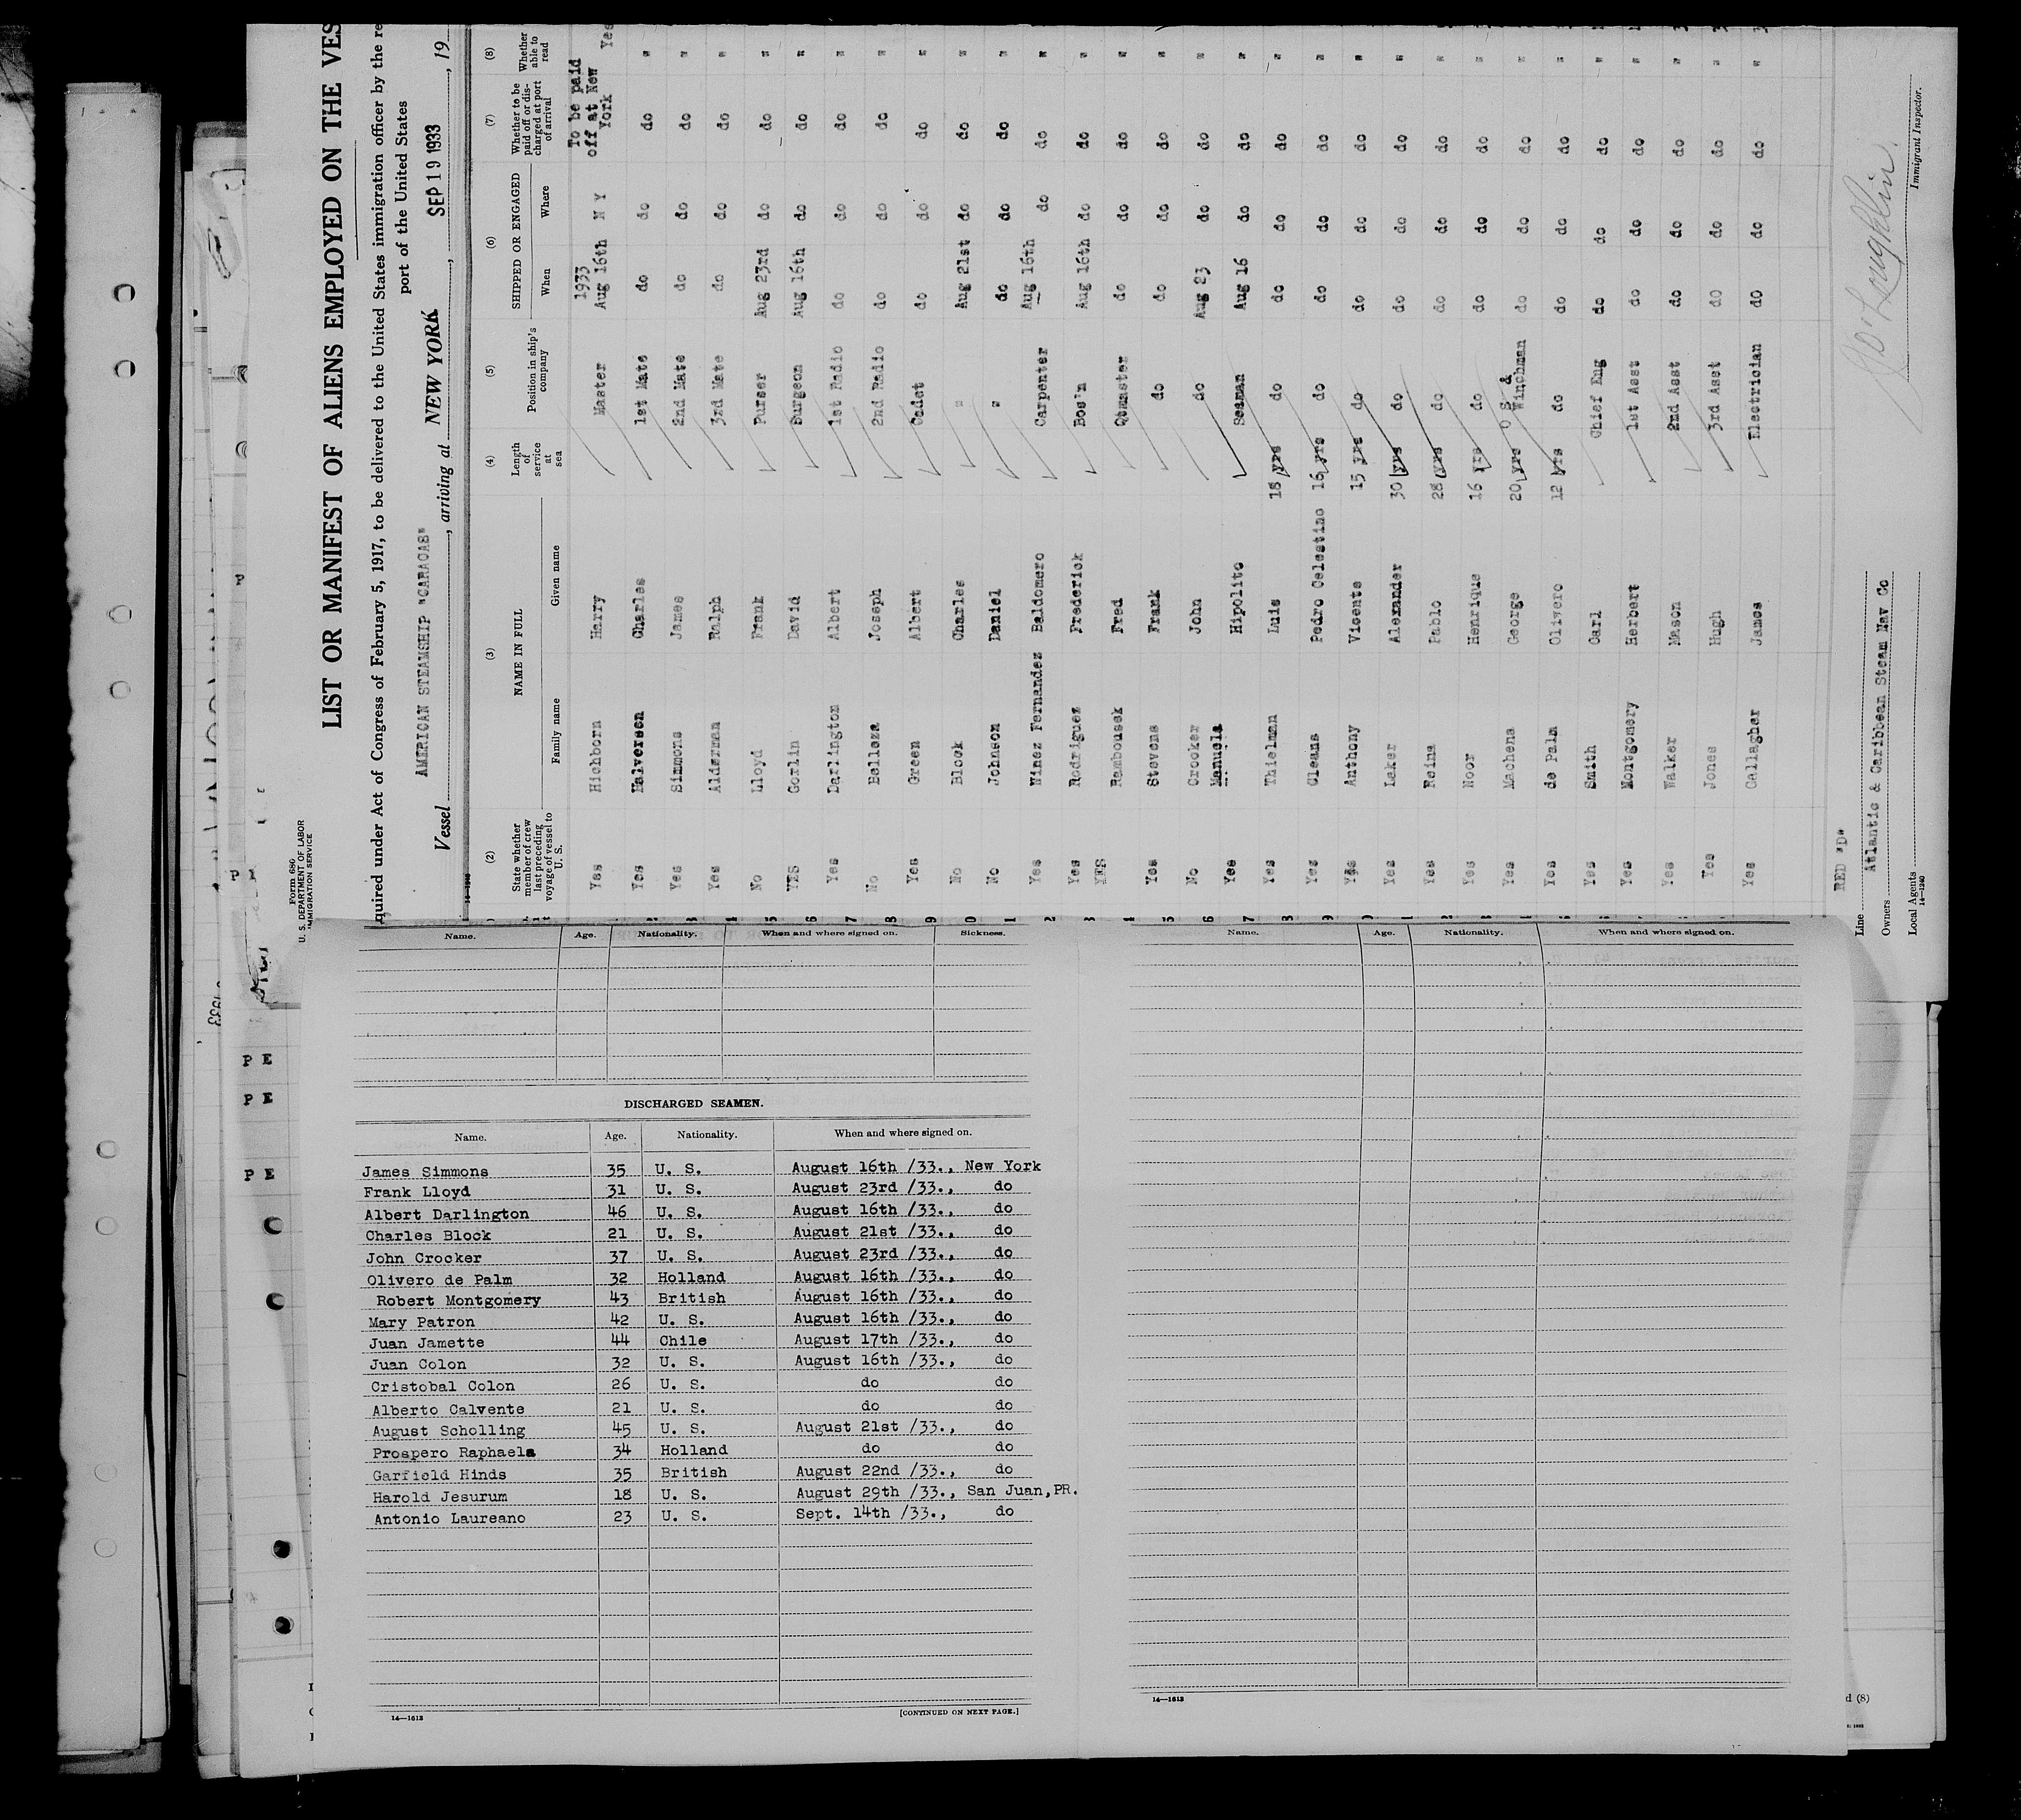 Form 680
U. S. DEPARTMENT OF LABOR
IMMIGRATION SERVICE
LIST OR MANIFEST OF ALIENS EMPLOYED ON THE VES
quired under Act of Congress of February 5, 1917, to be delivered to the United States immigration officer by the re
port of the United States
Vessel AMERICAN STEAMSHIP "CARACAS", arriving at NEW YORK, SEP 19 1933, 19
(2) (3) (4) (5) (6) (7) (8)
State whether member of crew last preceding voyage of vessel to U. S. NAME IN FULL Length of service at sea Position in ship's company SHIPPED OR ENGAGED Whether to be paid off or discharged at port of arrival Whether able to read
Family name Given name When Where
Yes Hichborn Harry Master 1933 Aug 16th N Y To be paid off at New York Yes
Yes Halvorsen Charles 1st Mate do do do "
Yes Simmons James 2nd Mate do do do "
Yes Alderman Ralph 3rd Mate do do do "
No Lloyd Frank Purser Aug 23rd do do "
YES Gorlin David Surgeon Aug 16th do do "
Yes Darlington Albert 1st Radio do do do "
No Belleza Joseph 2nd Radio do do do "
Yes Green Albert Cadet do do do "
No Block Charles " Aug 21st do do "
No Johnson Daniel " do do do "
Yes Winez Fernandez Baldomero Carpenter Aug 16th do do "
Yes Rodriguez Frederick Bos'n Aug 16th do do "
YES Rambousek Fred Qtmaster do do do "
Yes Stevens Frank do do do do "
No Crocker John do Aug 23 do do "
Yes Manuela Hipolito Seaman Aug 16 do do "
Yes Thielman Luis 18 yrs do do do do "
Yes Cleans Pedro Celestino 16 yrs do do do do "
Yes Anthony Vicente 15 yrs do do do do "
Yes Laker Alexander 30 yrs do do do do "
Yes Reina Pablo 28 yrs do do do do "
Yes Noor Henrique 16 yrs do do do do "
Yes Machena George 20 yrs O S & Winchman do do do "
Yes de Palm Olivero 12 yrs do do do do "
Yes Smith Carl Chief Eng do do do "
Yes Montgomery Herbert 1st Asst do do do "
Yes Walker Mason 2nd Asst do do do "
Yes Jones Hugh 3rd Asst do do do "
Yes Gallagher James Electrician do do do "
Line RED "D"
Owners Atlantic & Caribbean Steam Nav Co
Local Agents
14—1240
O'Loughlin
Immigrant Inspector.
Name. Age. Nationality. When and where signed on. Sickness.
DISCHARGED SEAMEN.
Name. Age. Nationality. When and where signed on.
James Simmons 35 U. S. August 16th /33., New York
Frank Lloyd 31 U. S. August 23rd /33., do
Albert Darlington 46 U. S. August 16th /33., do
Charles Block 21 U. S. August 21st /33., do
John Crocker 37 U. S. August 23rd /33., do
Olivero de Palm 32 Holland August 16th /33., do
Robert Montgomery 43 British August 16th /33., do
Mary Patron 42 U. S. August 16th /33., do
Juan Jamette 44 Chile August 17th /33., do
Juan Colon 32 U. S. August 16th /33., do
Cristobal Colon 26 U. S. do do
Alberto Calvente 21 U. S. do do
August Scholling 45 U. S. August 21st /33., do
Prospero Raphaela 34 Holland do do
Garfield Hinds 35 British August 22nd /33., do
Harold Jesurum 18 U. S. August 29th /33., San Juan,PR.
Antonio Laureano 23 U. S. Sept. 14th /33., do
14—1613
[CONTINUED ON NEXT PAGE.]
Name. Age. Nationality. When and where signed on.
14—1613
P E
P E
P E
d (8)